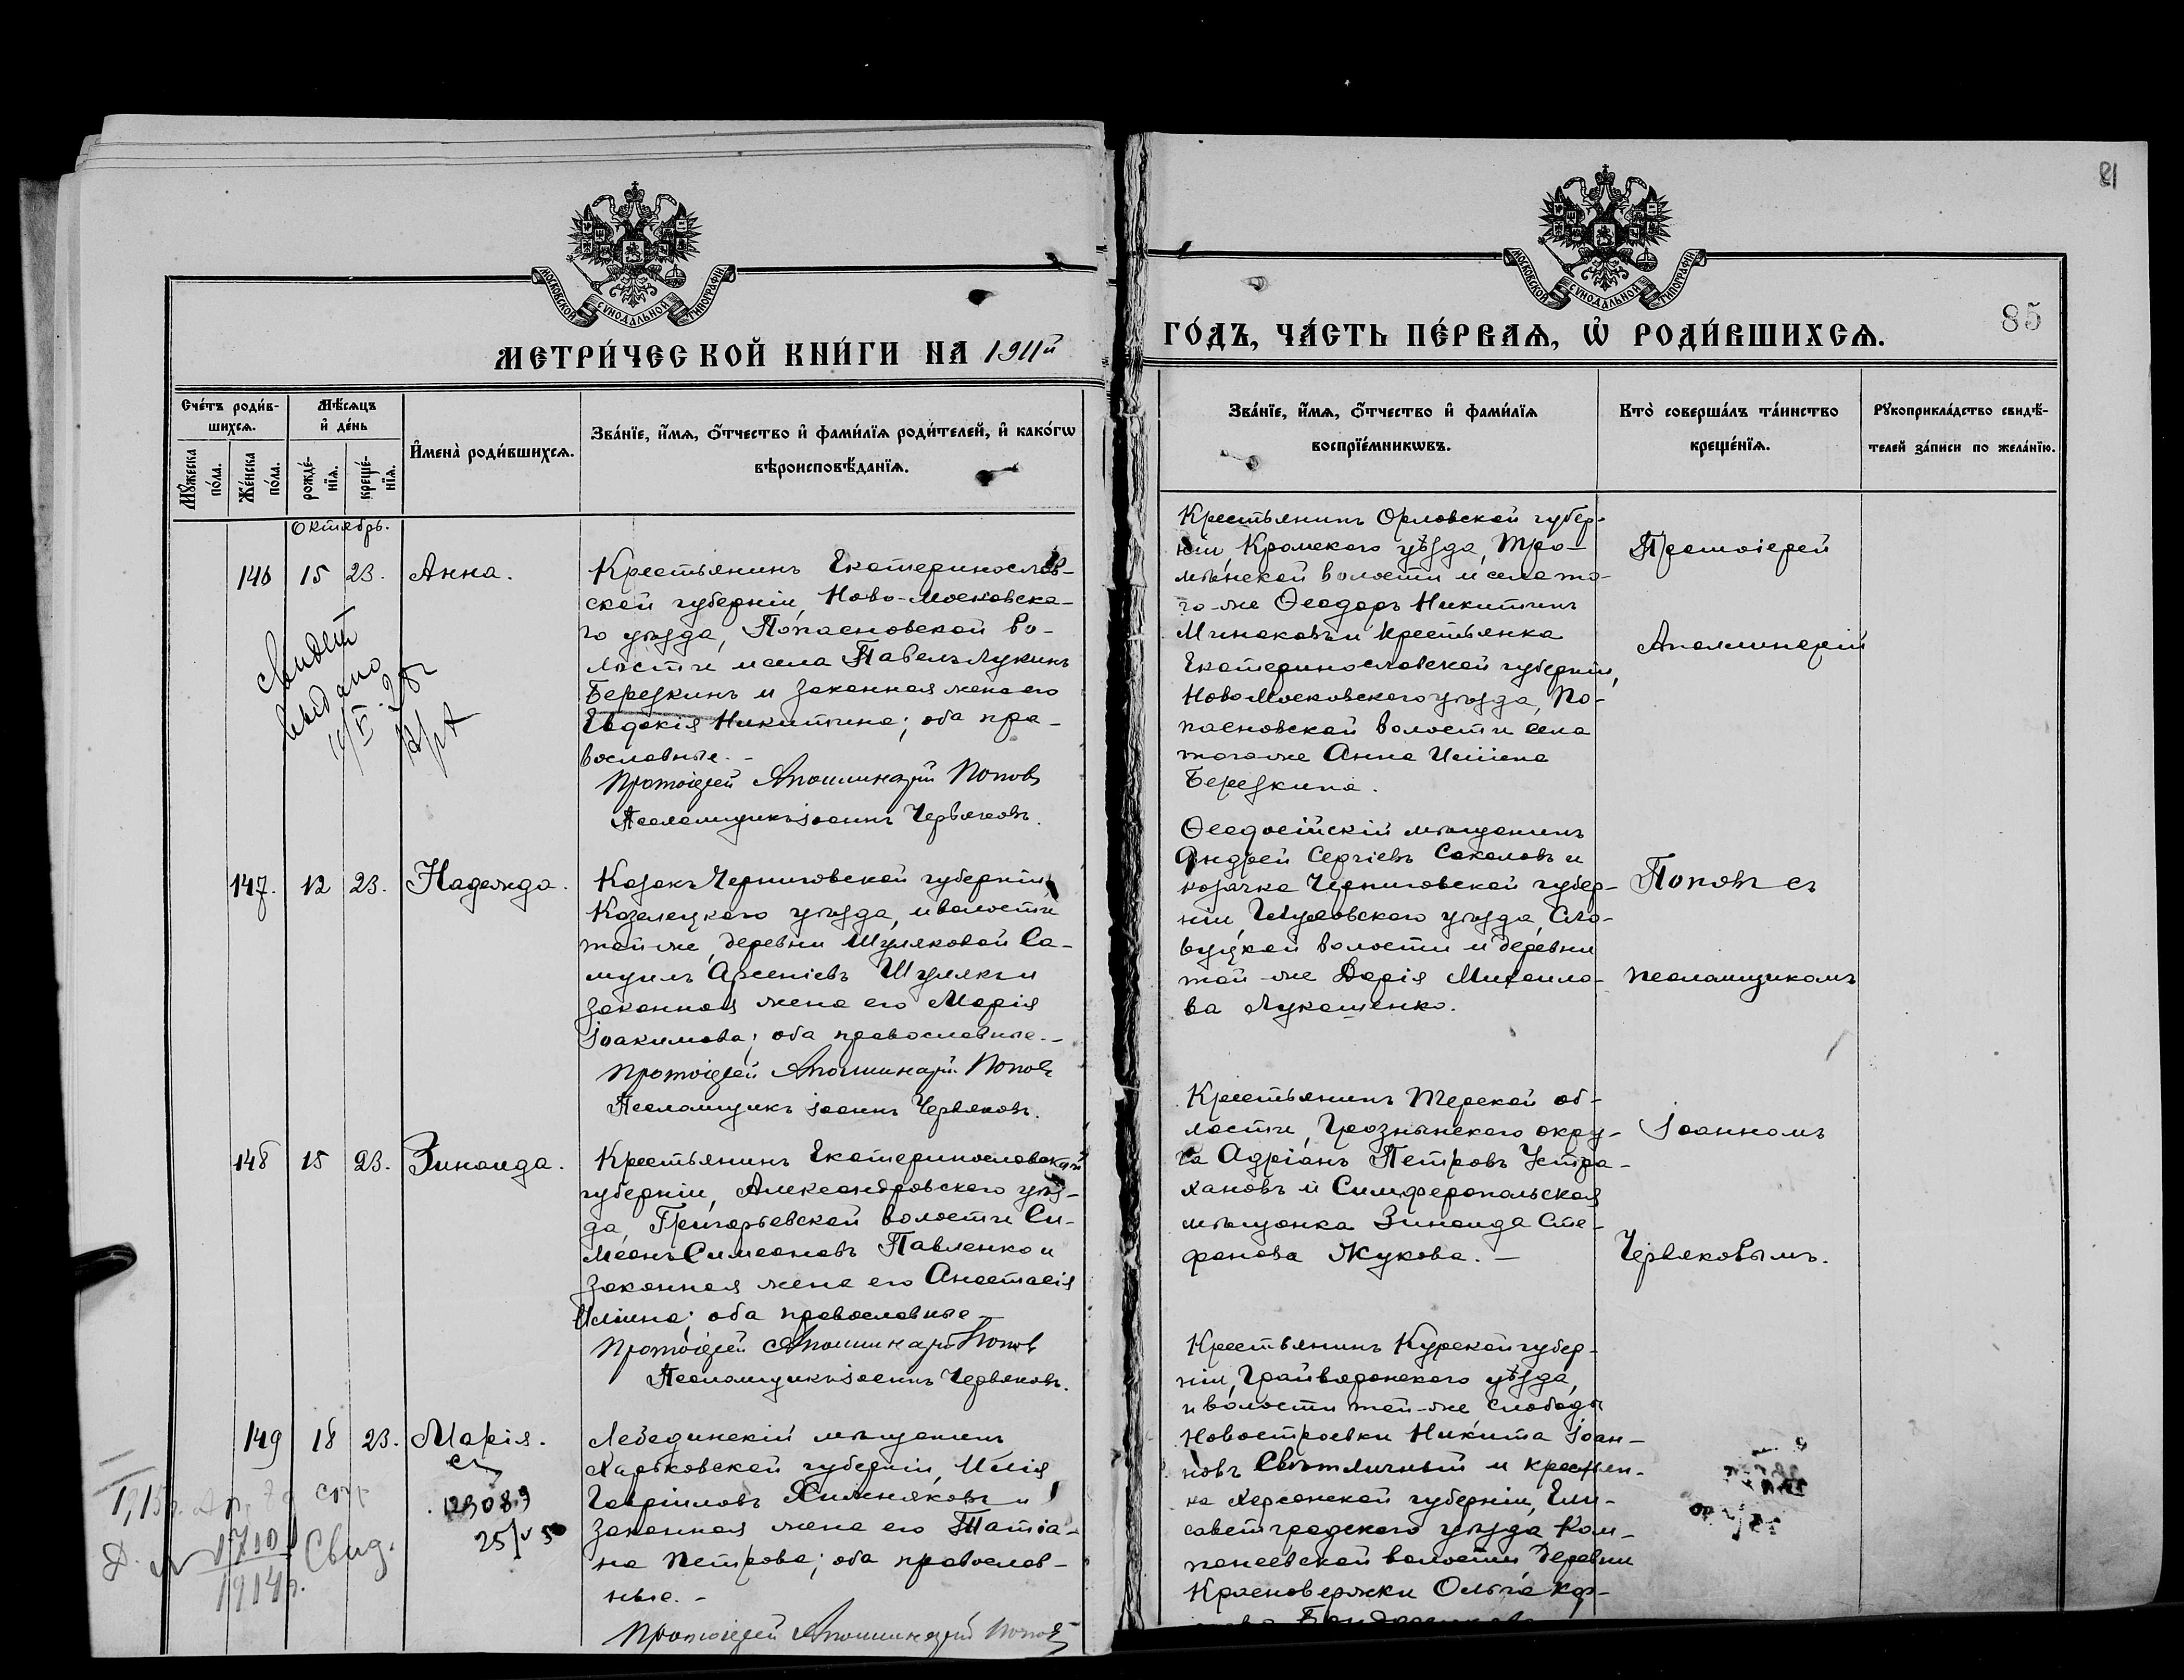 81
МОСКОВСКОЙ СѴНОДАЛЬНОЙ ТИПОГРАФІИ
МОСКОВСКОЙ СѴНОДАЛЬНОЙ ТИПОГРАФІИ
85
МЕТРИ́ЧЕСКОЙ КНИ́ГИ НА 1911й
ГО́ДЪ, ЧА́СТЬ ПЕ́РВАѦ, Ѡ҆ РОДИ́ВШИХСѦ.
Сче́тъ роди́в-
шихсѧ.
Мꙋ́жеска
по́ла.
Же́нска
по́ла.
Мѣ́сѧцъ
и҆ де́нь
рожде́-
нїѧ.
креще́-
нїѧ.
И҆мена̀ роди́вшихсѧ.
Зва́нїе, и҆́мѧ, ѻ҆́тчество и҆ фами́лїѧ роди́телей, и҆ како́гѡ
вѣроисповѣ́данїѧ.
Зва́нїе, и҆́мѧ, ѻ҆́тчество и҆ фами́лїѧ
воспрїе́мникѡвъ.
Кто̀ соверша́лъ та́инство
креще́нїѧ.
Рꙋкоприкла́дство свидѣ́-
телей за́писи по жела́нїю.
Октябрь.
146 15 23. Анна.
Крестьянинъ Екатеринослав-
ской губерніи, Ново-Московска-
го уѣзда, Попасновской во-
лости и села Павелъ Лукинъ
Березкинъ и законная жена его
Евдокія Никитина; оба пра-
вославные. -
Протоіерей Аполлинарій Поповъ
Псаломщикъ Іоаннъ Червяковъ.
Крестьянинъ Орловской губер-
ніи, Кромского уѣзда,
волости и села то-
го-же Ѳеодоръ Никитинъ
Минаковъ и крестьянка
Екатеринославской губерніи,
Ново Московского уѣзда, По-
пасновской волости села
того же Анна
Березкина.
Протоіерей
Аполлинарій
147. 12 23. Надежда.
Козакъ Черниговской губерніи
Козелецкого уѣзда, и волости
той же, деревни Шуляковой Са-
муилъ Арсеніевъ Шуляк и
законная жена его Марія
Іоакимова; оба православные. -
Протоіерей Аполлинарій Поповъ
Псаломщикъ Іоаннъ Червяковъ.
Ѳеодосійскій мѣщанинъ
Андрей Сергіевъ Соколовъ и
козачка Черниговской губер-
ніи, Глуховского уѣзда, Сло-
вуцкой волости и деревни
той-же Дарія Михаило-
ва Лукашенко.
Поповъ съ
псаломщикомъ
148 15 23. Зинаида.
Крестьянинъ Екатеринославской
губерніи, Александровского уѣз-
да, Григорьевской волости Си-
меонъ Симеоновъ Павленко и
законная жена его Анастасія
Иліина; оба православные -
Протоіерей Аполлинарій Поповъ
Псаломщикъ Іоаннъ Червяковъ.
Крестьянинъ Терской об-
ласти, Грозненского окру-
га Адріанъ Петровъ Устра-
хановъ и Симферопольская
мѣщанка Зинаида Сте-
фанова Жукова. -
Іоанномъ
Червяковымъ.
149 18 23. Марія.
123089
25/V 50
1915 г.
1710
1914 г.
Свид.
Лебединскій мѣщанинъ
Харьковской губерніи, Илія
Гавріиловъ Хижняковъ и
законная жена его Татіа-
на Петрова; оба православ-
ные. -
Протоіерей Аполлинарій Поповъ
Крестьянинъ Курской губер-
ніи, Грайворонского уѣзда,
и волости той-же слободы
Новостроевки Никита Іоан-
новъ Свѣтличный и крестьян-
ка Херсонской губерніи, Ели-
саветградского уѣзда Ком-
панеевской волости деревни
Красновершки Ольга